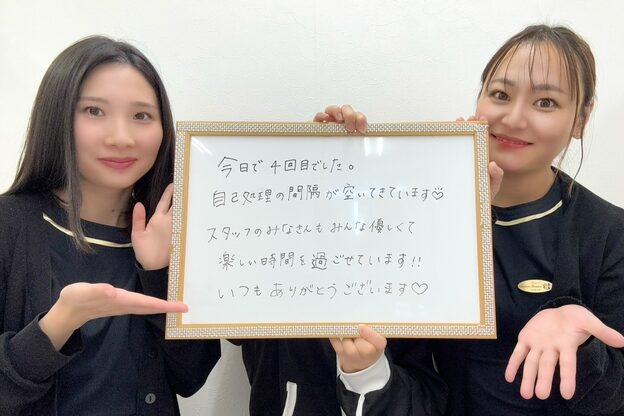 今日で4回目でした。
自己処理の間隔が空いてきています♡
スタッフのみなさんもみんな優しくて
楽しい時間を過ごせています!!
いつもありがとうございます♡